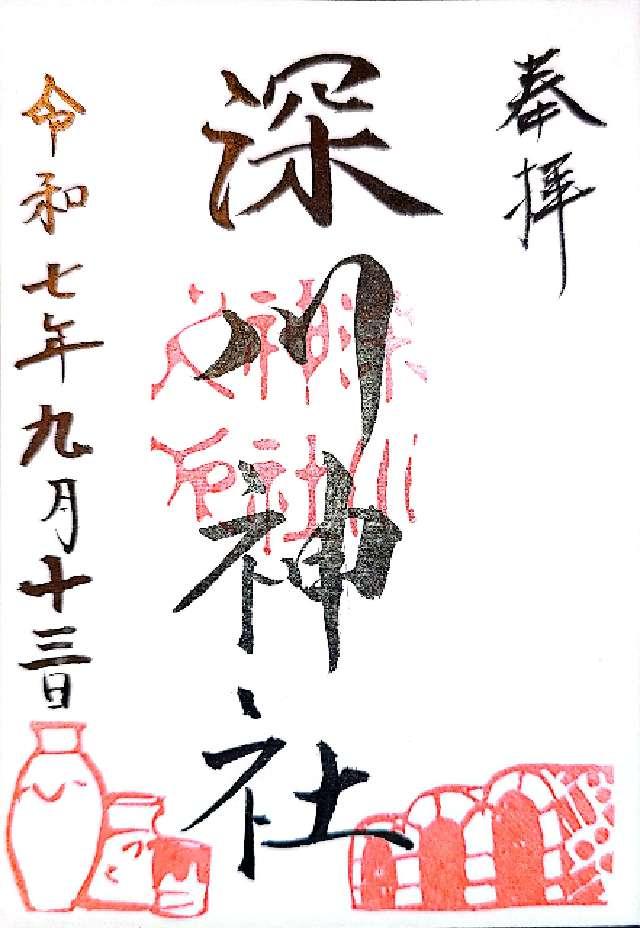 奉拝
深川神社
深川
神社
之印
令和七年九月十三日